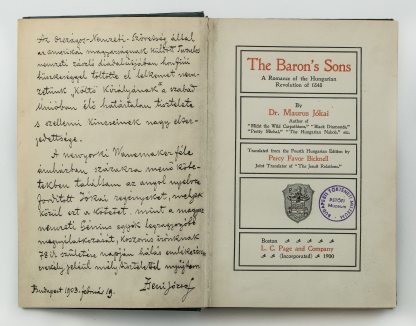 Az Országos-Nemzeti-Szövetség által
az amerikai magyarságnak küldött
nemzeti zászló diadalútjában honfiúi
büszkeséggel töltötte el lelkemet nem-
zetünk „Költő Királyának" a szabad
Unióban élő határtalan tisztelete
s szellemi kincseinek nagy elter-
jedettsége.
A newyorki Wanamaker féle
áruházban százakra menő köte-
tekben találtam az angol nyelvre
fordított Jókai regényeket, melyek
közül ezt a kötetet, mint a magyar
nemzeti Génius egyik legragyogóbb
megnyilatkozását, koszorús írónknak
78-ik születése napján hálás emlékezésem
csekély jeléül mély tisztelettel nyújtom
Budapest 1903. február 19.
József
The Baron's Sons
A Romance of the Hungarian
Revolution of 1848
By
Dr. Maurus Jókai
Author of
"Midst the Wild Carpathians," "Black Diamonds,"
"Pretty Michal," "The Hungarian Nabob," etc.
Translated from the Fourth Hungarian Edition by
Percy Favor Bicknell
Joint Translator of "The Jesuit Relations."
PETŐFI
Boston
L. C. Page and Company
(Incorporated) 1900